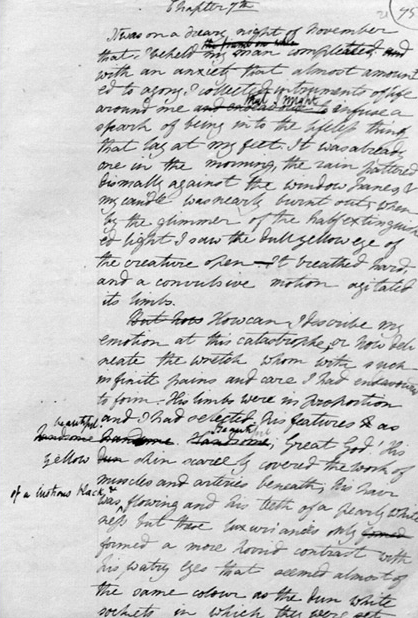 Chapter 7th
75
It was on a dreary night of November
that I beheld the frame on whic my man compleated and
with an anxiety that almost amount
ed to agony, I collected instruments of life
around me and endeavour that I might infuse a
spark of being into the lifeless thing
that lay at my feet. It was already
one in the morning, the rain pattered
dismally against the window panes, &
my candle was nearly burnt out, when
by the glimmer of the half extinguish
ed light I saw the dull yellow eye of
the creature open — It breathed hard,
and a convulsive motion agitated
its limbs.
But how How can I describe my
emotion at this catastrophe, or how deli
neate the wretch whom with such
infinite pains and care I had endeavoured
to form. His limbs were in proportion
and I had selected his features as
beautiful
handsome handsome. Handsome, Great God! His
yellow dun skin scarcely covered the work of
muscles and arteries beneath; his hair
of a lustrous black, &
was flowing and his teeth of a pearly white
ness but these luxuriancies only formed
formed a more horrid contrast with
his watry eyes that seemed almost of
the same colour as the dun white
sockets in which they were set,